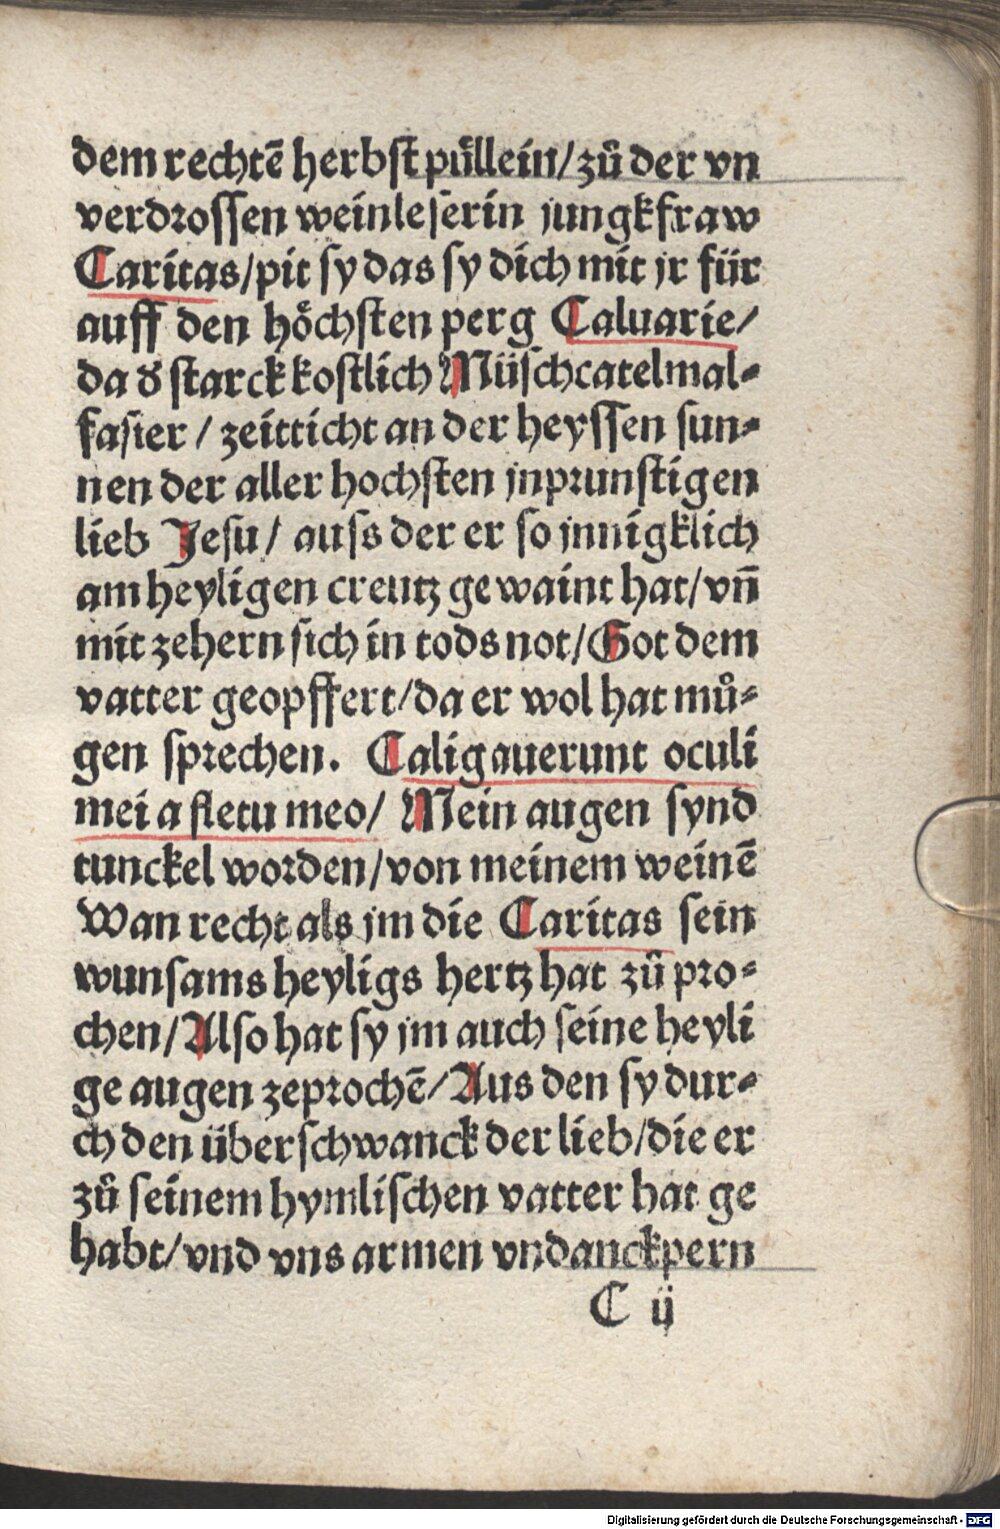 dem rechtē herbst púllein/zů der vn
verdꝛossen weinleserin jungkfraw
Caritas/pit sy das sy dich mit jr für
auff den hoͤchsten perg Caluarie/
da ð starck kostlich Müscatelmal⸗
fasier / zeitticht an der heyssen sun⸗
nen der aller hochsten jnpꝛunstigen
lieb Jesu/ auss der er so jnnigklich
am heyligen creutz gewaint hat/vn̄
mit zehern sich in tods not/Got dem
vatter geopffert/da er wol hat mů⸗
gen spꝛechen. Caligauerunt oculi
mei a fletu meo/ Mein augen synd
tunckel woꝛden/von meinem weinē
Wan recht als jm die Caritas sein
wunsams heyligs hertz hat zů pꝛo⸗
chen/Also hat sy jm auch seine heyli
ge augen zepꝛochē/Aus den sy dur⸗
ch den überschwanck der lieb/die er
zů seinem hymlischen vatter hat ge
habt/vnd vns armen vndanckpern
C ij
Digitalisierung gefördert durch die Deutsche Forschungsgemeinschaft - DFG